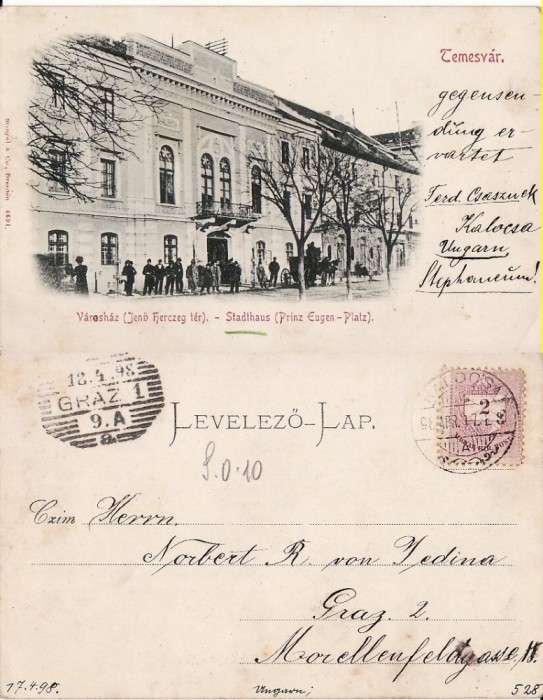 Temesvár.
gegensen-
dung er-
wartet
Ferd. Császnek
Kalocsa
Ungarn
Stephaneum!
Stengel & Co., Dresden. 4691.
Városház (Jenö herczeg tér). - Stadthaus (Prinz Eugen-Platz).
18.4.98
GRAZ 1.
9.A
a
LEVELEZŐ-LAP.
KALOCSA
2
S.0.10
Czim Herrn.
Norbert R. von Jedina
Graz. 2.
Morellenfeldgasse
17.4.98.
Ungarn;
528